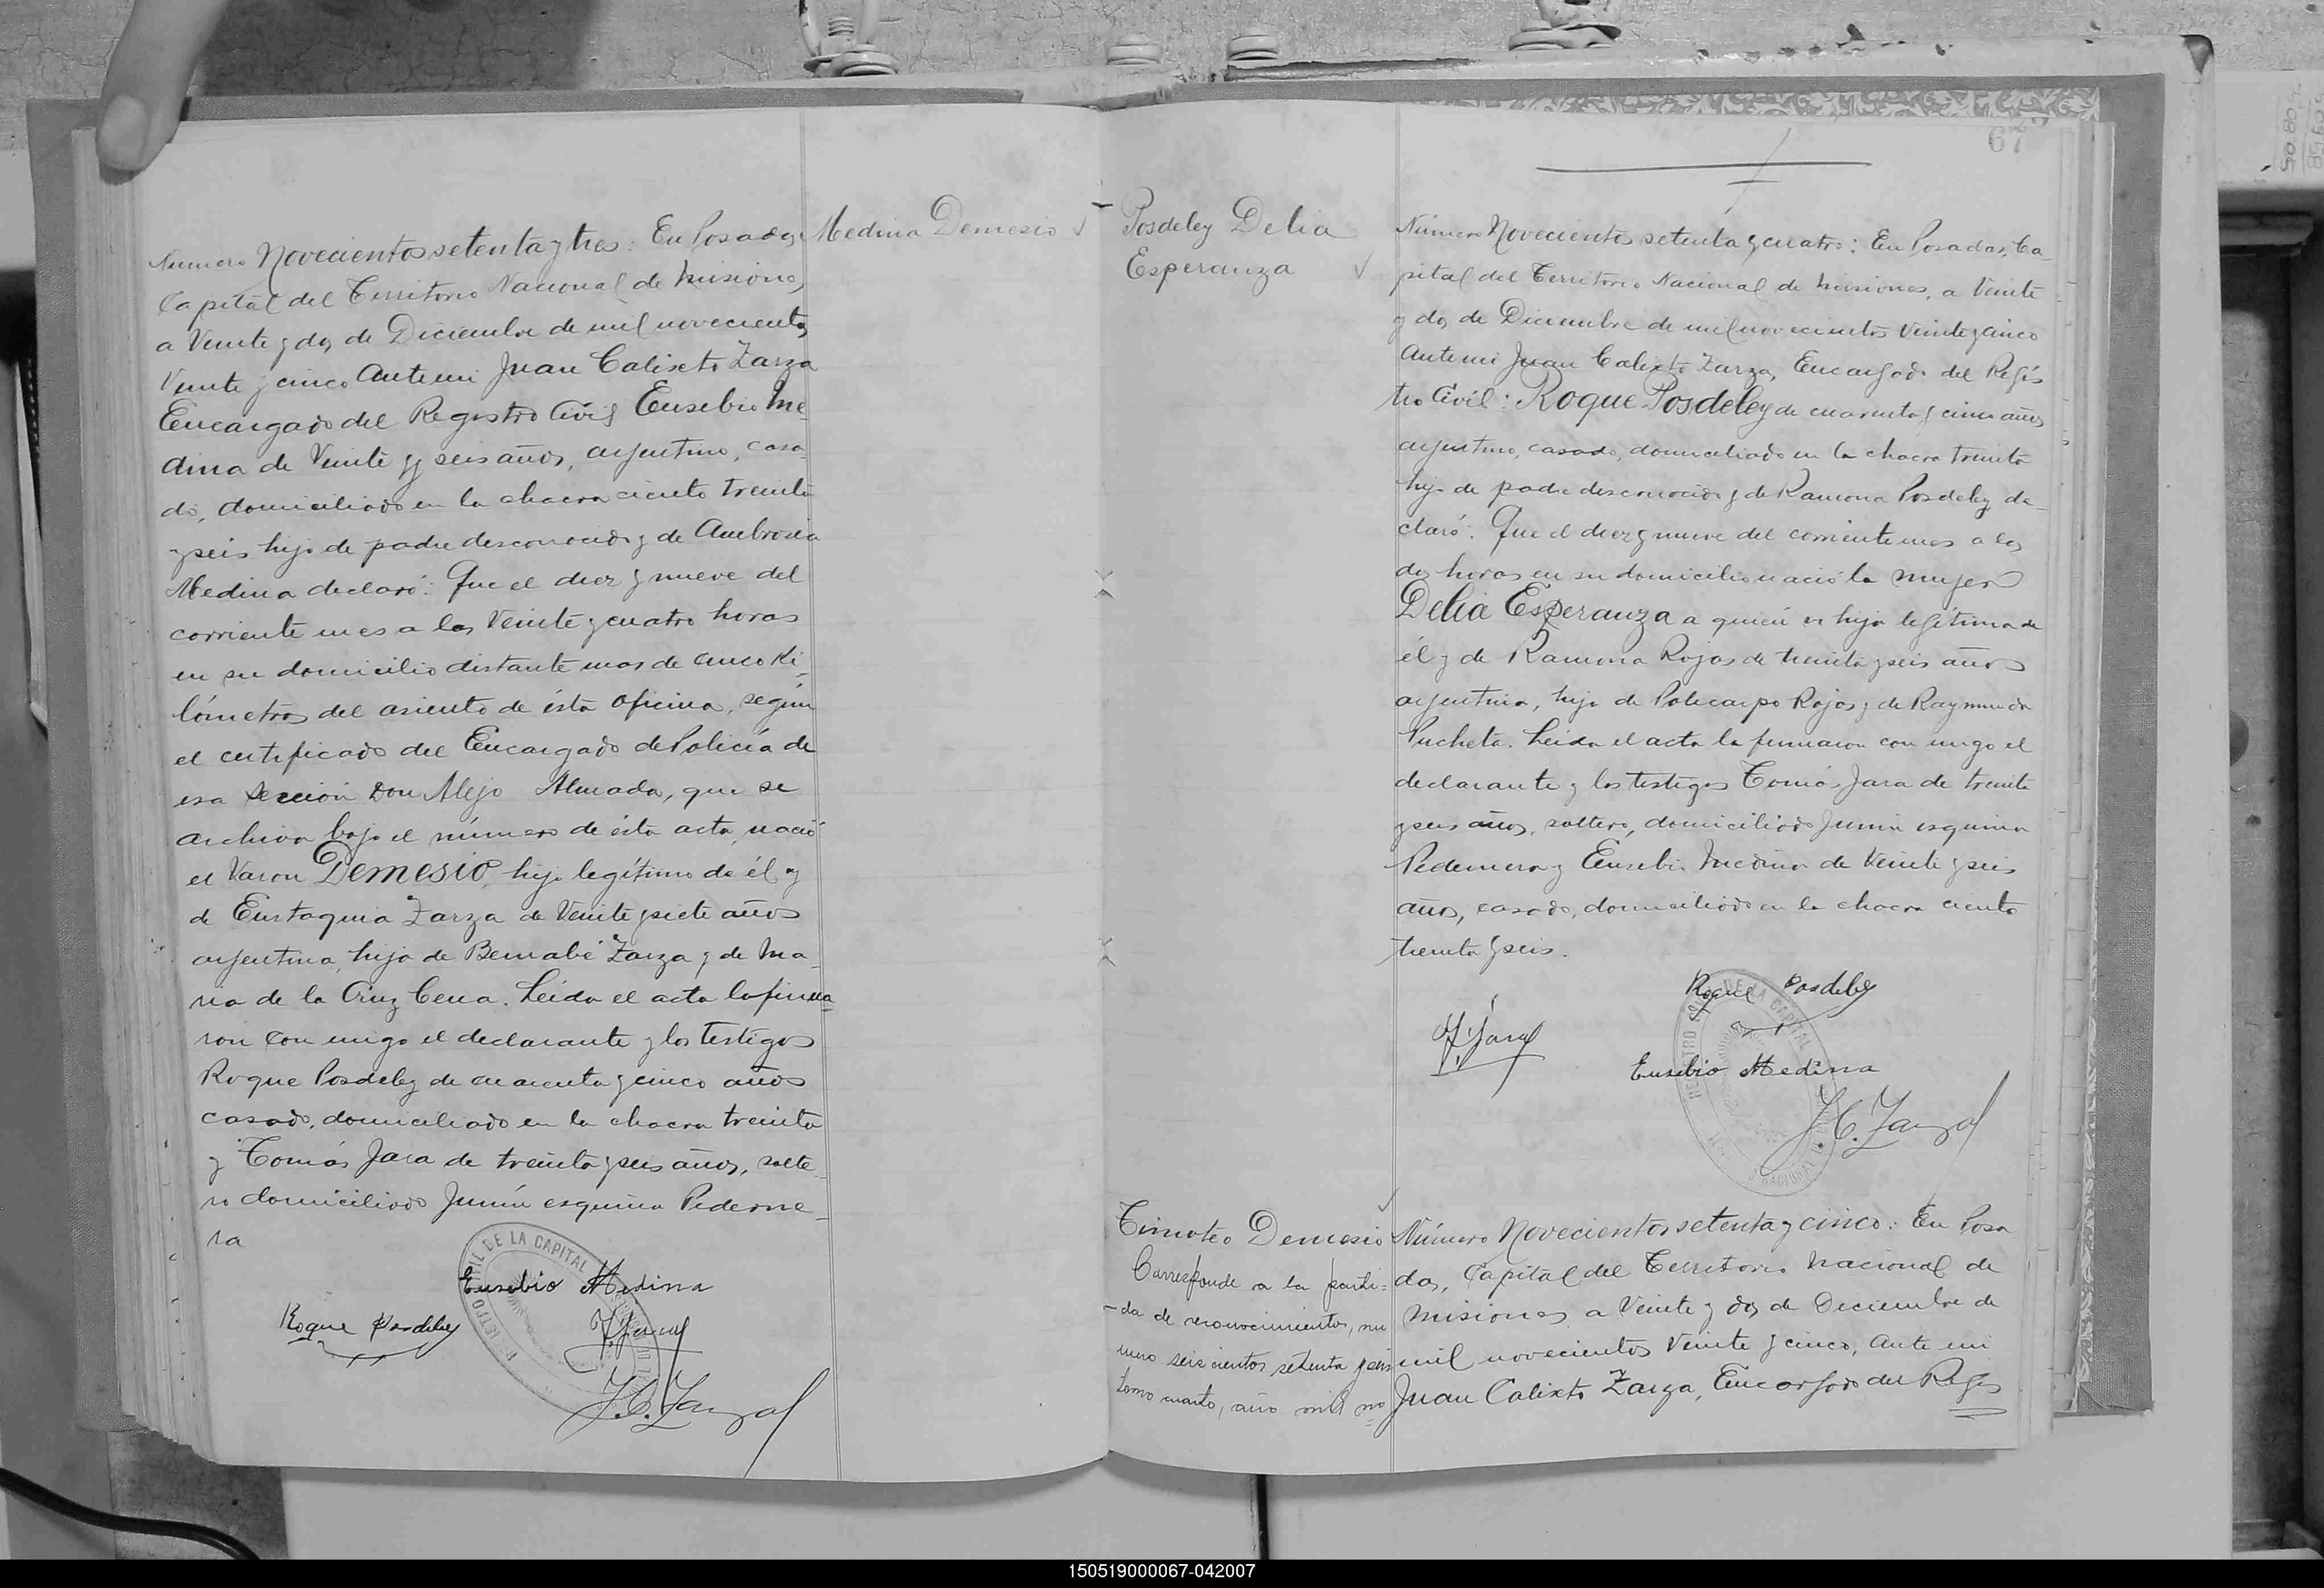 Número Novecientos setenta y tres: En Posadas,
Capital del Territorio Nacional de Misiones,
a Veinte y dos de Diciembre de mil novecientos
Veinte y cinco Ante mi Juan Calixto Zarza
Encargado del Registro Civil Eusebio Me-
dina de Veinte y seis años, argentino, casa-
do, domiciliado en la chacra ciento treinta
y seis hijo de padre desconocido y de Ambrosia
Medina declaró: Que el diez y nueve del
corriente mes a las Veinte y cuatro horas
en su domicilio distante mas de cinco Ki-
lómetros del asiento de ésta Oficina, según
el certificado del Encargado de Policía de
esa Sección Don Alejo Almada, que se
archiva bajo el número de ésta acta, nació
el Varon Demesio, hijo legítimo de él y
de Eustaquia Zarza de Veinte y siete años
argentina, hija de Bernabé Zarza y de Ma-
ria de la Cruz Cena. Leida el acta la firma-
ron con migo el declarante y los testigos
Roque Posdeley de cuarenta y cinco años
casado, domiciliado en la chacra treinta
y Tomás Jara de treinta y seis años, solte-
ro domiciliado Junín esquina Pederne-
ra
Eusebio Medina
Roque Posdeley
T. Jara
J. C. Zarza
REGISTRO CIVIL DE LA CAPITAL
Medina Demesio
Posdeley Delia
Esperanza
67
Número Novecientos setenta y cuatro: En Posadas, Ca-
pital del Territorio Nacional de Misiones, a Veinte
y dos de Diciembre de mil novecientos Veinte y cinco
Ante mi Juan Calixto Zarza, Encargado del Regis
tro Civil: Roque Posdeley de cuarenta y cinco años
argentino, casado, domiciliado en la chacra treinta
hijo de padre desconocido y de Ramona Posdeley de-
claró: Que el diez y nueve del corriente mes a las
dos horas en su domicilio nació la mujer
Delia Esperanza a quien es hija legítima de
él y de Ramona Rojas de treinta y seis años
argentina, hija de Policarpo Rojas y de Raymunda
Pucheta. Leida el acta la firmaron con migo el
declarante y los testigos Tomás Jara de treinta
y seis años, soltero, domiciliado Junin esquina
Pedernera y Eusebio Medina de Veinte y seis
años, casado, domiciliado en la chacra ciento
treinta y seis.
Roque Posdeley
T. Jara
Eusebio Medina
J. C. Zarza
REGISTRO CIVIL DE LA CAPITAL
Timoteo Demesio
Corresponde a la parti-
da de reconocimientos, nu
mero seiscientos setenta y seis
tomo cuarto, año mil no
Número Novecientos setenta y cinco: En Posa
das, Capital del Territorio Nacional de
Misiones a Veinte y dos de Diciembre de
mil novecientos Veinte y cinco, ante mi
Juan Calixto Zarza, Encargado del Regis
150519000067-042007